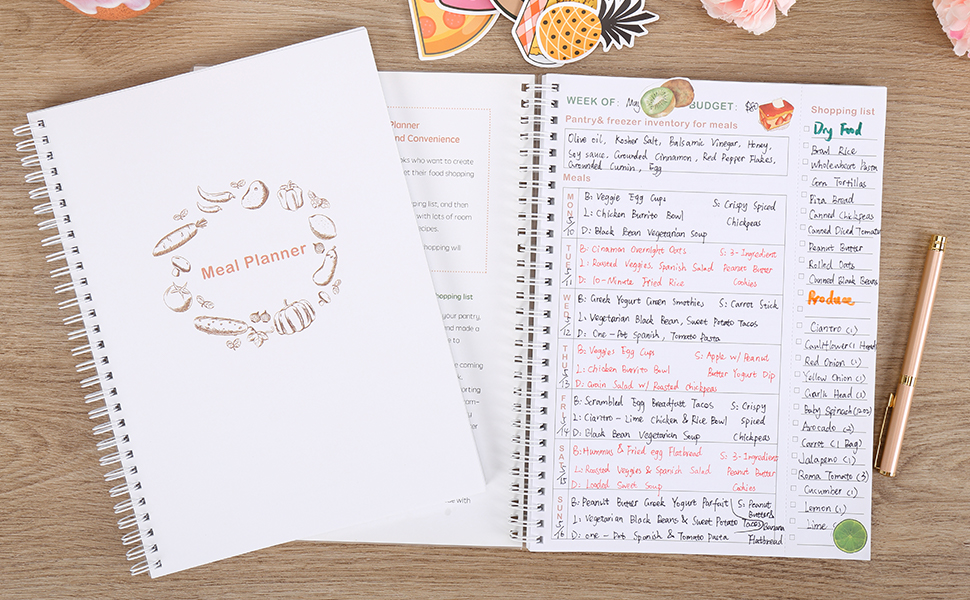 Meal Planner
Planner
nd Convenience
oks who want to create
et their food shopping
ping list, and then
with lots of room
cipes.
hopping will
hopping list
your pantry,
nd made a
e to
e coming
porting
com-
each
e with
WEEK OF: May
BUDGET: $80
Pantry& freezer inventory for meals
Olive oil, Kosher Salt, Balsamic Vinegar, Honey,
Soy sauce, Grounded Cinnamon, Red Pepper Flakes,
Grounded Cumin, Egg
Meals
MON 5/10
B: Veggie Egg Cups
S: Crispy Spiced
L: Chicken Burrito Bowl
Chickpeas
D: Black Bean Vegetarian Soup
TUE 5/11
B: Cinnamon Overnight Oats
S: 3-Ingredient
L: Roasted Veggies, Spanish Salad
Peanut Butter
D: 10-Minute Fried Rice
Cookies
WED 5/12
B: Greek Yogurt Green Smothies
S: Carrot Stick
L: Vegetarian Black Bean, Sweet Potato Tacos
D: One-Pot Spanish, Tomato Pasta
THU 5/13
B: Veggies Egg Cups
S: Apple w/ Peanut
L: Chicken Burrito Bowl
Butter Yogurt Dip
D: Grain Salad w/ Roasted chickpeas
FRI 5/14
B: Scrambled Egg Breadfast Tacos
S: Crispy
L: Ciantro-Lime Chicken & Rice Bowl
Spiced
D: Black Bean Vegetarian Soup
Chickpeas
SAT 5/15
B: Hummus & Fried egg Flatbread
S: 3-Ingredient
L: Roasted Veggies & Spanish Salad
Peanut Butter
D: Loaded Sweet Soup
Cookies
SUN 5/16
B: Peanut Butter Greek Yogurt Parfait
S: Peanut
Butter&
L: Vegetarian Black Beans & Sweet Potato Tacos
Banana
D: one-Pot Spanish & Tomato Pasta
Flatbread
Shopping list
Dry Food
Browl Rice
Wholewheat Pasta
Corn Tortillas
Pita Bread
Canned Chickpeas
Canned Diced Tomatoe
Peanut Butter
Rolled Oats
Canned Black Beans
Produce
Ciantro (1)
Cauliflower (1 Head
Red Onion (1)
Yellow Onion (1)
Garlic Head (1)
Baby Spinach
Avocado (2)
Carrot (1 Bag)
Jalapeno (1)
Roma Tomato (3)
Cucumber (1)
Lemon (1)
Lime